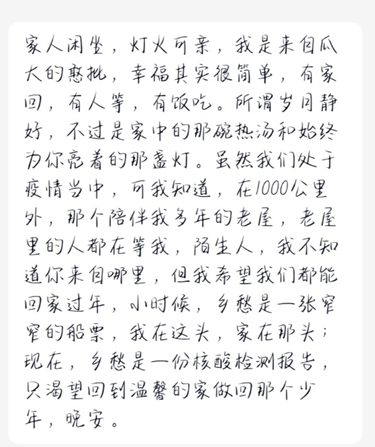 家人闲坐，灯火可亲，我是来自瓜
大的憨批，幸福其实很简单，有家
回，有人等，有饭吃。所谓岁月静
好，不过是家中的那碗热汤和始终
为你亮着的那盏灯。虽然我们处于
疫情当中，可我知道，在1000公里
外，那个陪伴我多年的老屋，老屋
里的人都在等我，陌生人，我不知
道你来自哪里，但我希望我们都能
回家过年，小时候，乡愁是一张窄
窄的船票，我在这头，家在那头；
现在，乡愁是一份核酸检测报告，
只渴望回到温馨的家做回那个少
年，晚安。